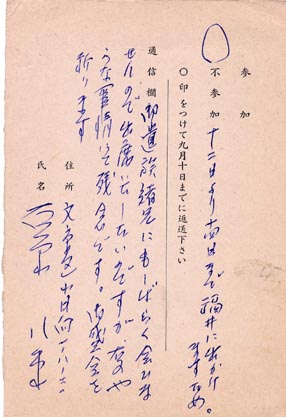 参加
不参加 十二日より十四日まで福井に出かけ
ますため。
〇印をつけて九月十日までに返送下さい
通信欄 御遺族諸兄にもしばらく会いま
せんので出席いたしたいのですが右のや
うな事情にて残念です。御盛会を
祈ります
住所 文京区小日向
氏名